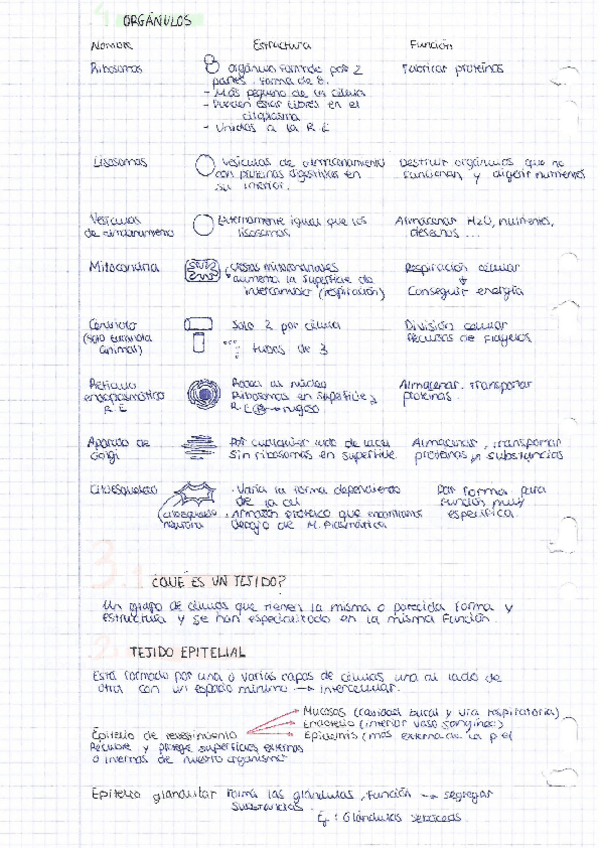 ORGÁNULOS
Nombre Estructura Función
Ribosomas orgánulo formado por 2 Fabricar proteínas
partes. Forma de 8.
- Más pequeño de la célula
- Pueden estar libres en el
citoplasma
- Unidos a la R.E
Lisosomas Vesículas de almacenamiento Destruir orgánulos que no
con proteinas digestivas en funcionan y digerir nutrientes
su interior.
Vesículas Externamente igual que los Almacenar H2O, nutrientes,
de almacenamiento lisosomas desechos ...
Mitocondria crestas mitocondriales Respiración celular
aumenta la superficie de
intercambio (respiración) Conseguir energía
Centriolo Solo 2 por célula División celular
(solo eucariota tubos de 3 Flagelos
animal)
Retículo Rodea al núcleo Almacenar. Transportar
endoplasmático Ribosomas en superficie proteínas.
R.E R.E → rugoso
Aparato de Por cualquier lado de la cel Almacenar, transportar
Golgi Sin ribosomas en superficie proteínas y substancias
Citoesqueleto · Varía la forma dependiendo Da forma para
de la cel función muy
citoesqueleto · Armazón proteico que específica.
neurona debajo de M. Plasmática
3.
¿QUÉ ES UN TEJIDO?
Un grupo de células que tienen la misma o parecida forma y
estructura y se han especializado en la misma función.
TEJIDO EPITELIAL
Está formado por una o varias capas de células una al lado de
otra con un espacio mínimo → intercelular.
Mucosas (cavidad bucal y vía respiratoria)
Endotelio (interior vaso sanguíneo)
Epitelio de revestimiento Epidermis (más externa de la piel
Recubre y protege superficies externas
o internas de nuestro organismo
Epitelio glandular Forma las glándulas, función → segregar
substancias.
Ej: Glándulas sebáceas.